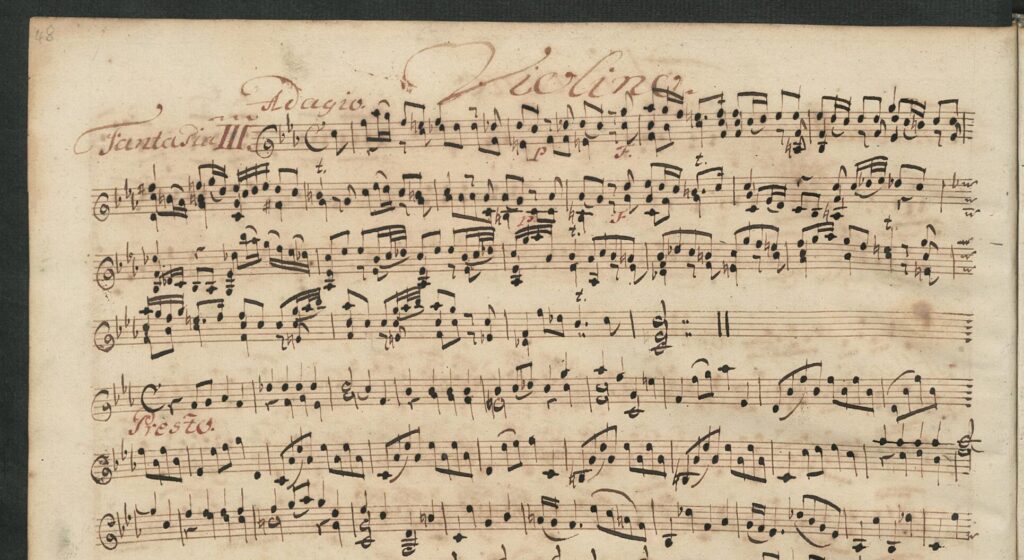 48
Violino.
Adagio.
Fantasia III
t.
p F.
t.
p F.
t.
t.
t.
Presto.